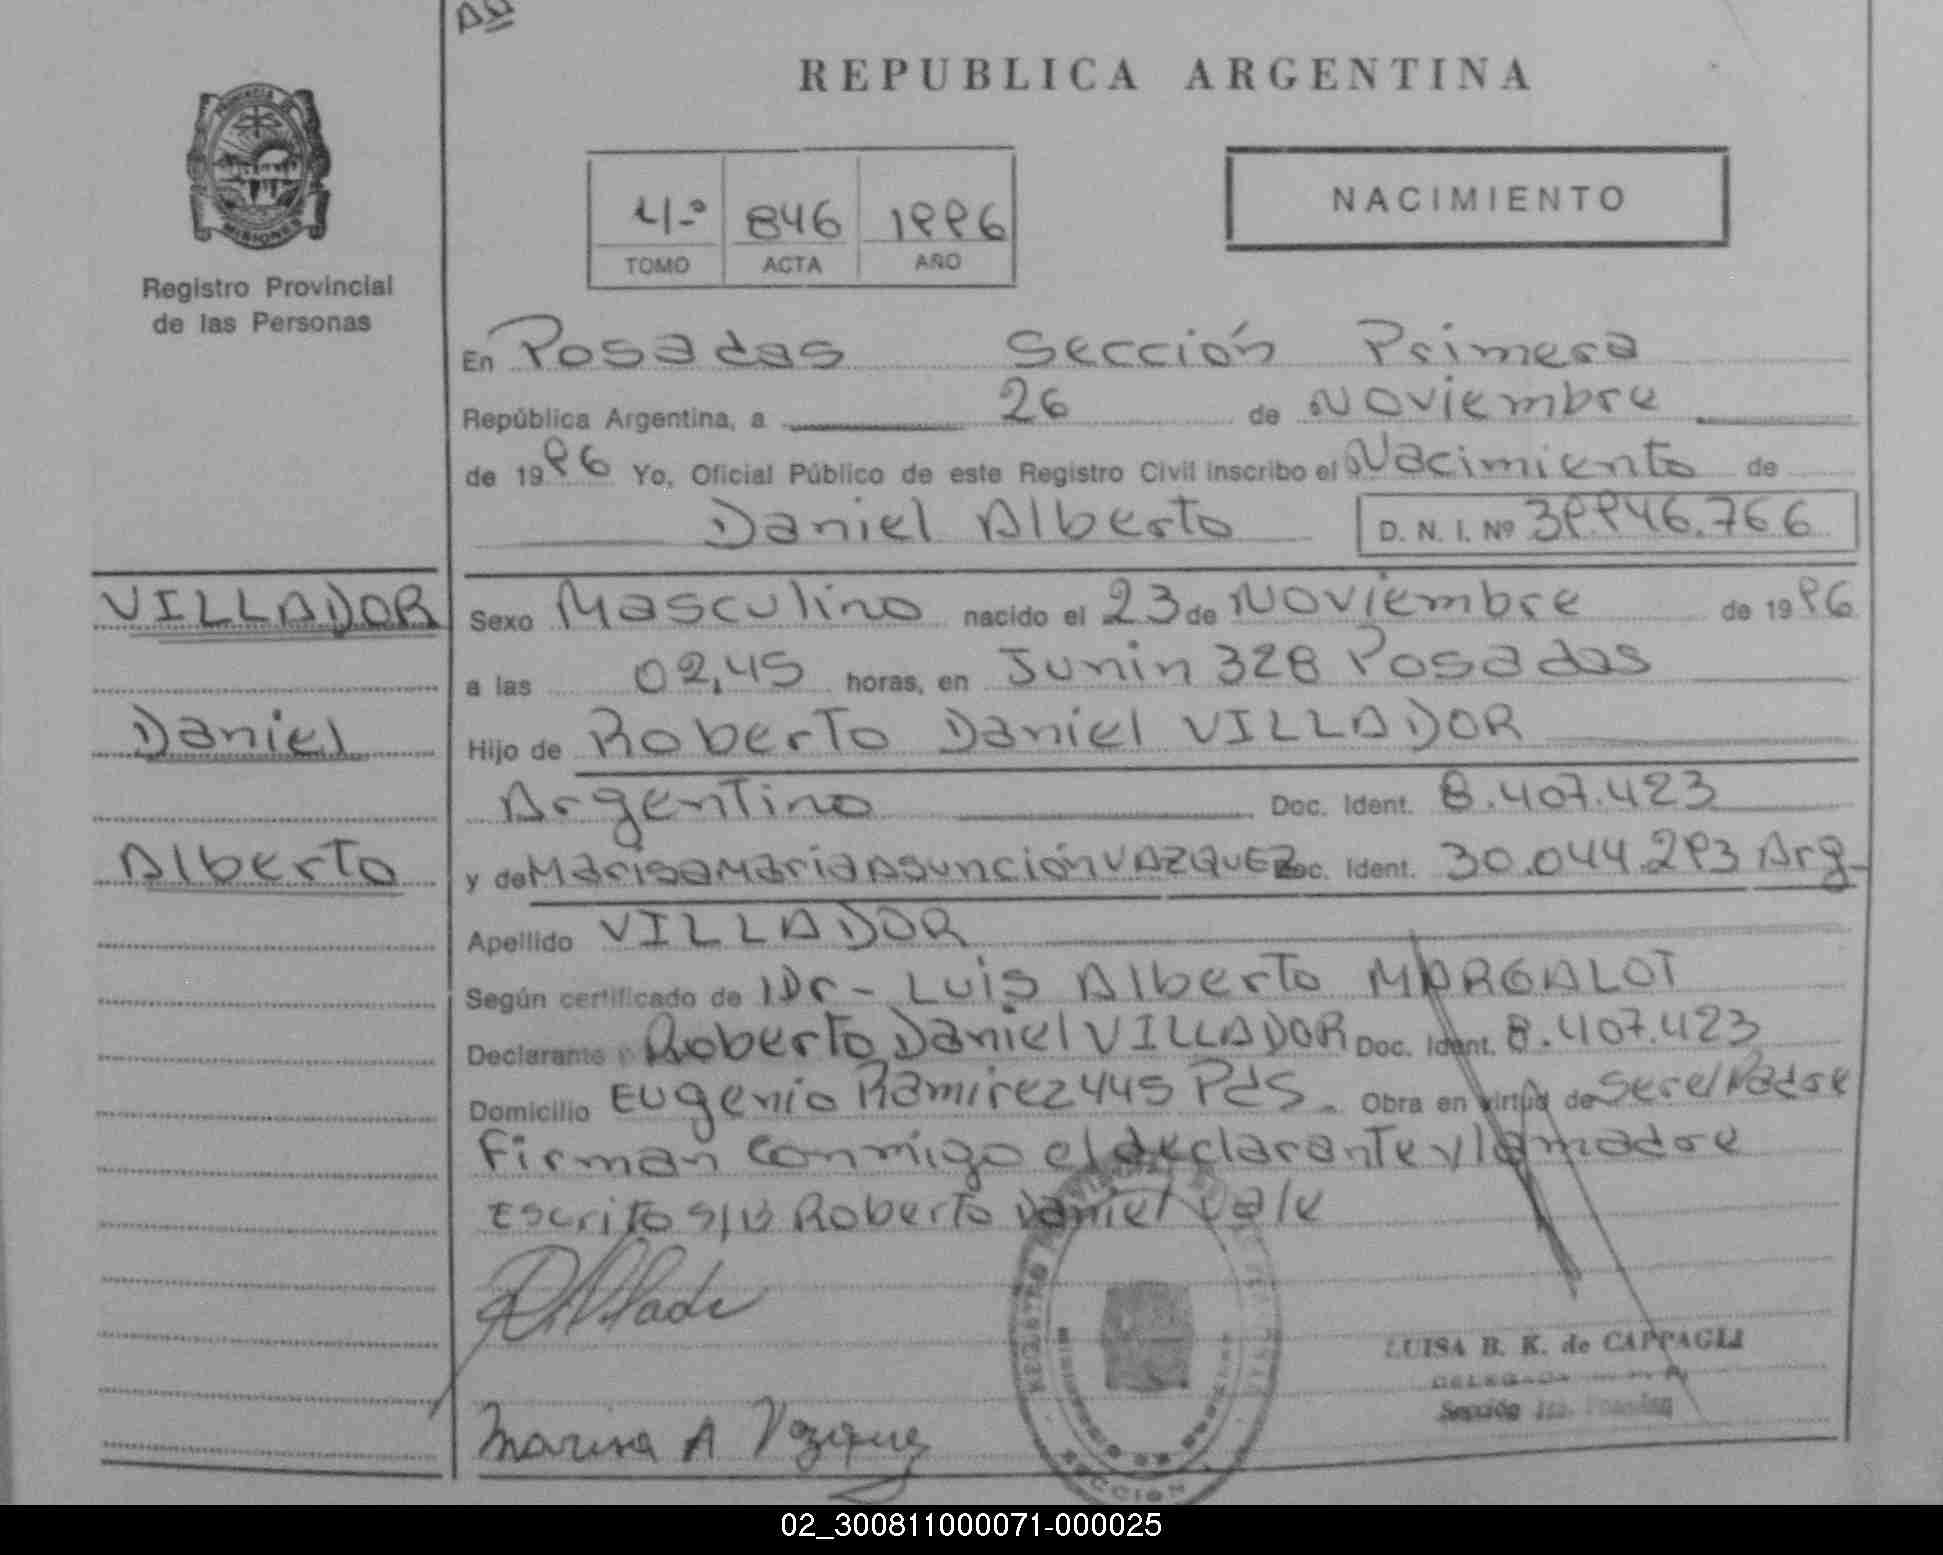 REPUBLICA ARGENTINA
PROVINCIA DE
MISIONES
Registro Provincial
de las Personas
4º 846 1996
TOMO ACTA AÑO
NACIMIENTO
En Posadas Sección Primera
República Argentina, a 26 de Noviembre
de 1996 Yo, Oficial Público de este Registro Civil inscribo el Nacimiento de
Daniel Alberto D. N. I. Nº 39.946.766
VILLADOR
Daniel
Alberto
Sexo Masculino nacido el 23 de Noviembre de 1996
a las 02,45 horas, en Junin 328 Posadas
Hijo de Roberto Daniel VILLADOR
Argentino Doc. Ident. 8.407.423
y de Marisa Maria Asunción VAZQUEZ Doc. Ident. 30.044.293 Arg-
Apellido VILLADOR
Según certificado de Dr- Luis Alberto MARGALOT
Declarante Roberto Daniel VILLADOR Doc. Ident. 8.407.423
Domicilio Eugenio Ramirez 445 Pds. Obra en virtud de ser el Padre
Firman conmigo el declarante y la madre
Escrito s/b Roberto Daniel Vale
Marisa A Vazquez
LUISA B. K. de CAPPAGLI
DELEGADA
Sección 1ra. Posadas
SECCION
02_300811000071-000025